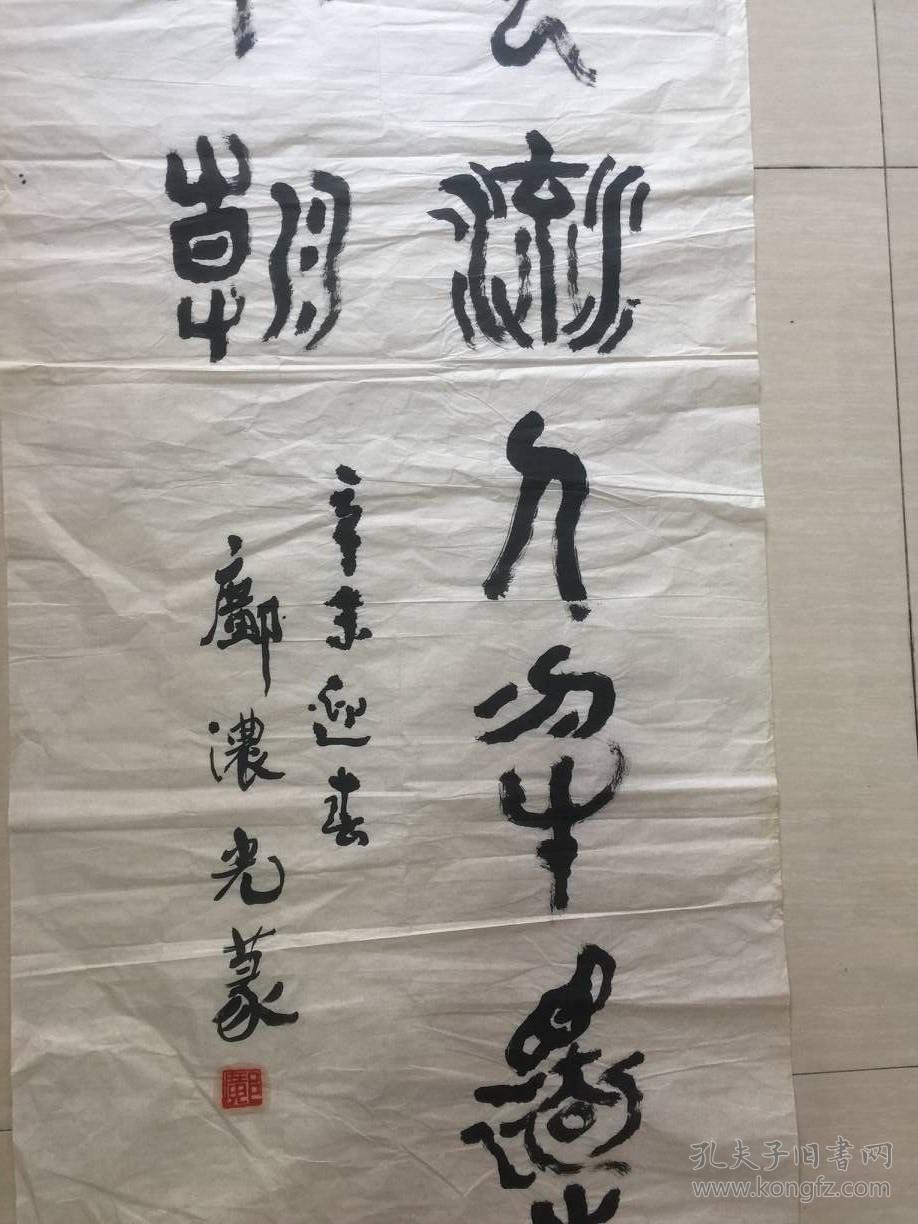 流人物還
朝
辛未迎春
鄺濃光篆
鄺
孔夫子旧书网
www.kongfz.com